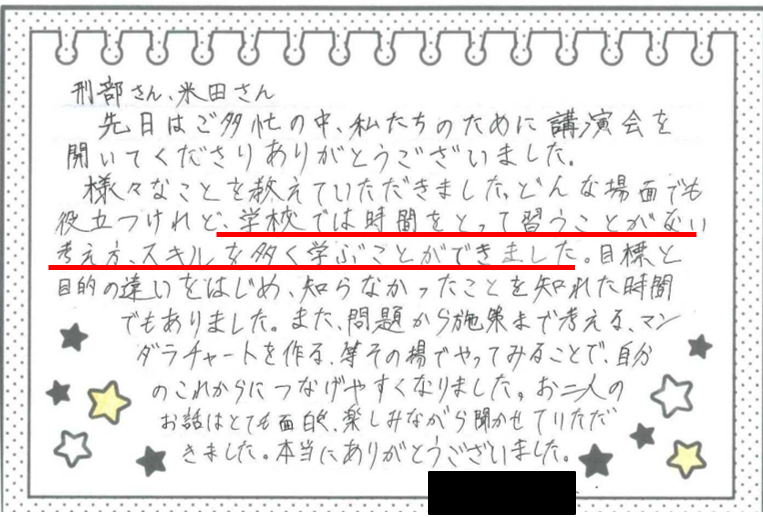 刑部さん、米田さん
先日はご多忙の中、私たちのために講演会を
開いてくださりありがとうございました。
様々なことを教えていただきました。どんな場面でも
役立つけれど、学校では時間をとって習うことがない
考え方、スキルを多く学ぶことができました。目標と
目的の違いをはじめ、知らなかったことを知れた時間
でもありました。また、問題から施策まで考える、マン
ダラチャートを作る、等その場でやってみることで、自分
のこれからにつなげやすくなりました。お二人の
お話はとても面白く、楽しみながら聞かせていただ
きました。本当にありがとうございました。